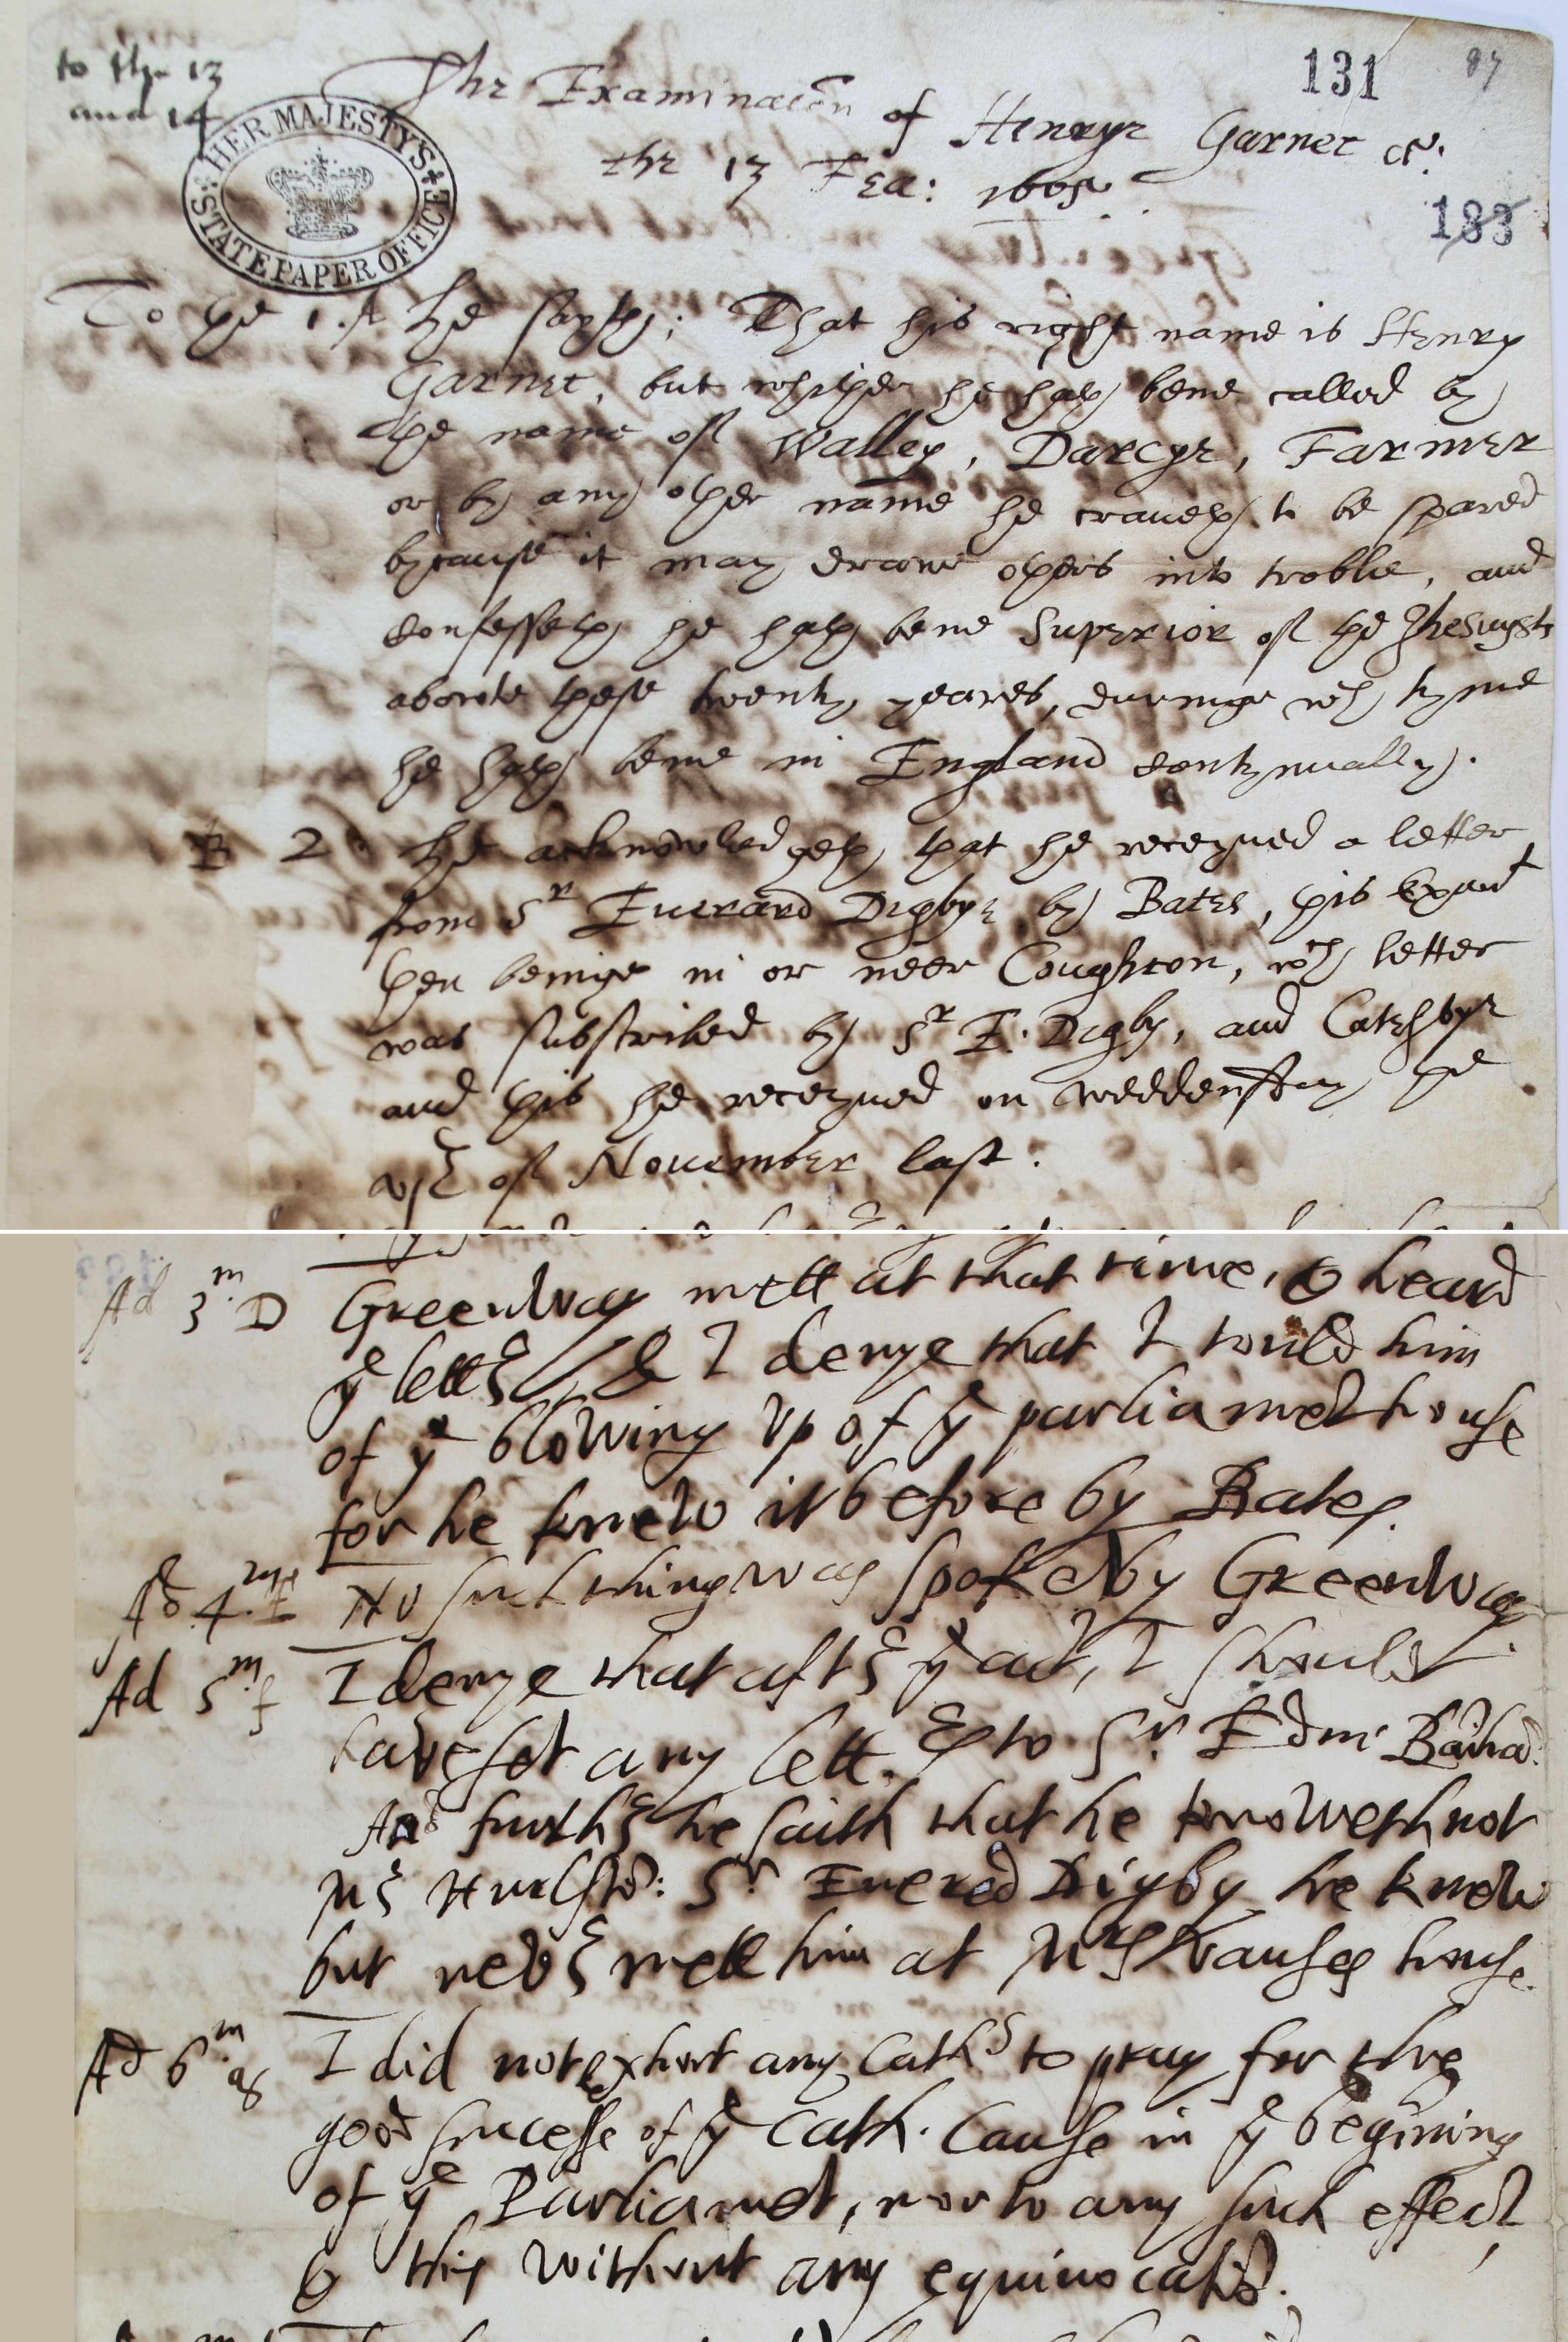 to the 13
and 14
131
87
HER MAJESTYS
STATE PAPER OFFICE
The Examinacon of Henrye Garnet
the 13 Fea: 1605
183
To the 1. A he sayth; That his right name is Henry
Garnet, but whither he hath bene called by
the name of Walley, Darcye, Farmer
or by any other name he craueth to be spared
bycause it may drawe others into troble, and
confesseth he hath bene Superior of the Jhesuyts
aboute these twenty yeares, duringe wch tyme
he hath bene in England contynually.
B 2 he acknowledgeth that he receyued a letter
from Sr Euerard Digbye by Bates, this Exant
then beinge in or neer Coughton, wch letter
was subscribed by Sr E. Digby, and Catesbye
and this he receyued on weddensday the
of November last.
Ad 3m. D Greenway mett at that time, & heard
ye lettr, & I denye that I tould him
of ye blowing vp of ye parliamet house
for he knew it before by Bates.
Ad 4.m E No such thing was spoken by Greenway
Ad 5m. f I denye that aftr yt day, I should
have set any lett. to Sr. Edm: Bainha:
And furthr he saith that he knoweth not
Mr Hurlsto: Sr. Euered Digby he knew
but nevr mett him at Mrs Vauses house.
Ad 6m. g I did not exhort any Caths to pray for the
good successe of ye Cath. Cause in ye begining
of ye Parliamet, nor to any such effect,
& this without any equivocatio.